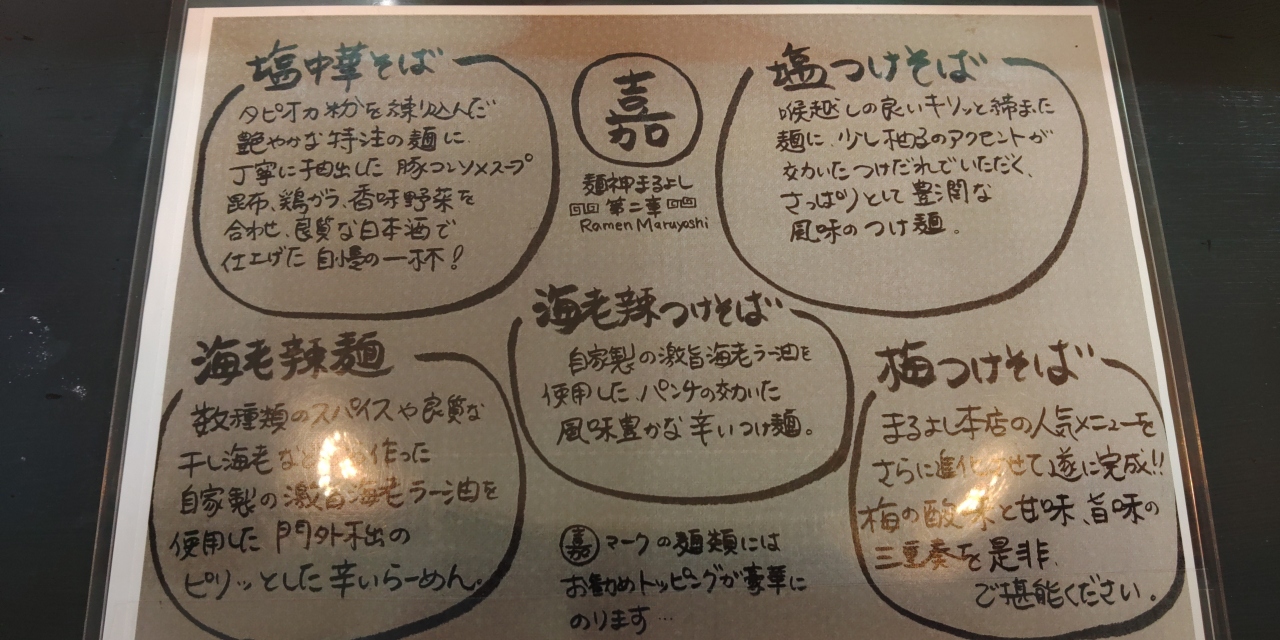 塩中華そば
タピオカ粉を練り込んだ
艶やかな特注の麺に
丁寧に抽出した 豚コンソメスープ
昆布、鶏がら、香味野菜を
合わせ、良質な日本酒で
仕上げた 自慢の一杯!
嘉
麺神まるよし
第二章
Ramen Maruyoshi
塩つけそば
喉越しの良いキリッと締また
麺に、少し柚るのアクセントが
効いたつけだれでいただく、
さっぱりとして豊潤な
風味のつけ麺。
海老辣麺
数種類のスパイスや良質な
干し海老な 作った
自家製の激旨海老ラー油を
使用した 門外不出の
ピリッとした辛いらーめん。
海老辣つけそば
自家製の激旨海老ラー油を
使用した、パンチの効いた
風味豊かな辛いつけ麺。
嘉マークの麺類には
お勧めトッピングが豪華に
のります…
梅つけそば
まるよし本店の人気メニューを
さらに進化させて遂に完成!!
梅の酸味と甘味、旨味の
三重奏を是非、
ご堪能ください。